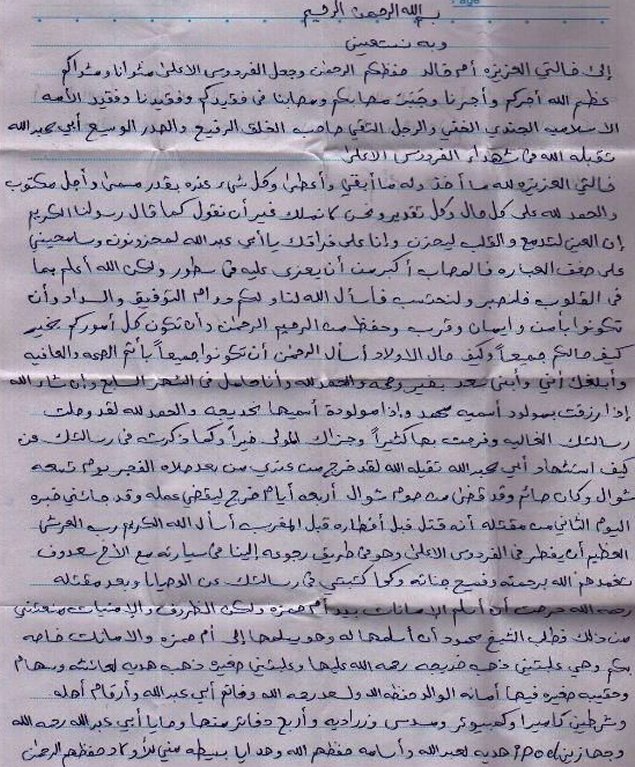 بسم الله الرحمن الرحيم
وبه نستعين
إلى خالتي العزيزه أم خالد حفظكم الرحمن وجعل الفردوس الاعلى مثوانا ومثواكم
عظم الله أجركم وأجرنا وجبر مصابكم ومصابنا في فقيدكم وفقيدنا وفقيد الأمه
الاسلاميه الجندي الخفي والرجل التقي صاحب الخلق الرفيع والصدر الوسيع أبي عبدالله
تقبله الله في شهداء الفردوس الاعلى
خالتي العزيزه لله ما أخذ وله ما أبقى وأعطى وكل شيء عنده بقدر مسمى وأجل مكتوب
والحمد لله على كل حال وكل تقدير ونحن لانملك غير أن نقول كما قال رسولنا الكريم
إن العين لتدمع والقلب ليحزن وإنا على فراقك يا أبي عبد الله لمحزونون وسامحيني
على ضعف العباره فالمصاب أكبر من أن يعزى عليه في سطور ولكن الله أعلم بما
في القلوب فلنصبر ولنحتسب فأسأل الله لنا ولكم دوام التوفيق والسداد وأن
تكونوا بأمن وإيمان وقرب وحفظ من الرحيم الرحمن وأن تكون كل أموركم بخير
كيف حالكم جميعاً وكيف حال الاولاد أسأل الرحمن أن تكونوا جميعاً بأتم الصحه والعافيه
وأبلغك أني وأبني سعد بخير وصحه والحمد لله وأنا حامل في الشهر السابع وإن شاء الله
إذا رزقت بمولود أسميه محمد وإذا مولودة أسميها خديجه والحمد لله لقد وصلت
رسالتك الغاليه وفرحت بها كثيراً وجزاك المولى خيراً وكما ذكرت في رسالتك عن
كيف استشهاد أبي عبد الله تقبله الله لقد خرج من عندي من بعد صلاه الفجر يوم تسعه
شوال وكان صائم وقد قضى من صوم شوال أربعه أيام خرج ليقضي عمله وقد جائني خبره
اليوم الثاني من مقتله أنه قتل قبل أفطاره قبل المغرب أسأل الله الكريم رب العرش
العظيم أن يفطر في الفردوس الاعلى وهو في طريق رجوعه إلينا في سيارته مع الأخ سعدوف
تغمدهم الله برحمته وفسيح جناته وكما كتبتي في رسالتك عن الوصايا وبعد مقتله
رحمه الله حرصت أن أسلم الامانات بيد أم حمزه ولكن الظروف والإمنيات منعتني
من ذلك فطلب الشيخ محمود أن أسلمها له وهو يسلمها إلى أم حمزه والامانات خاصه
بكم وهي علبتي ذهب خديجه رحمه الله عليها وعلبتين صغيره ذهب هديه لعائشه وسهام
وحقيبه صغيره فيها أمانه الوالد حفظه الله ولسعد رحمه الله وخاتم أبي عبدالله وأرقام أهله
وشرطين كاميرا وكمبيوتر ومسدس وزراديه وأربع دفاتر منها وصايا أبي عبدالله رحمه الله
وجهازين IPod هديه لعبدالله وأسامه حفظهم الله وهدايا بسيطه مني للأولاد حفظهم الرحمن